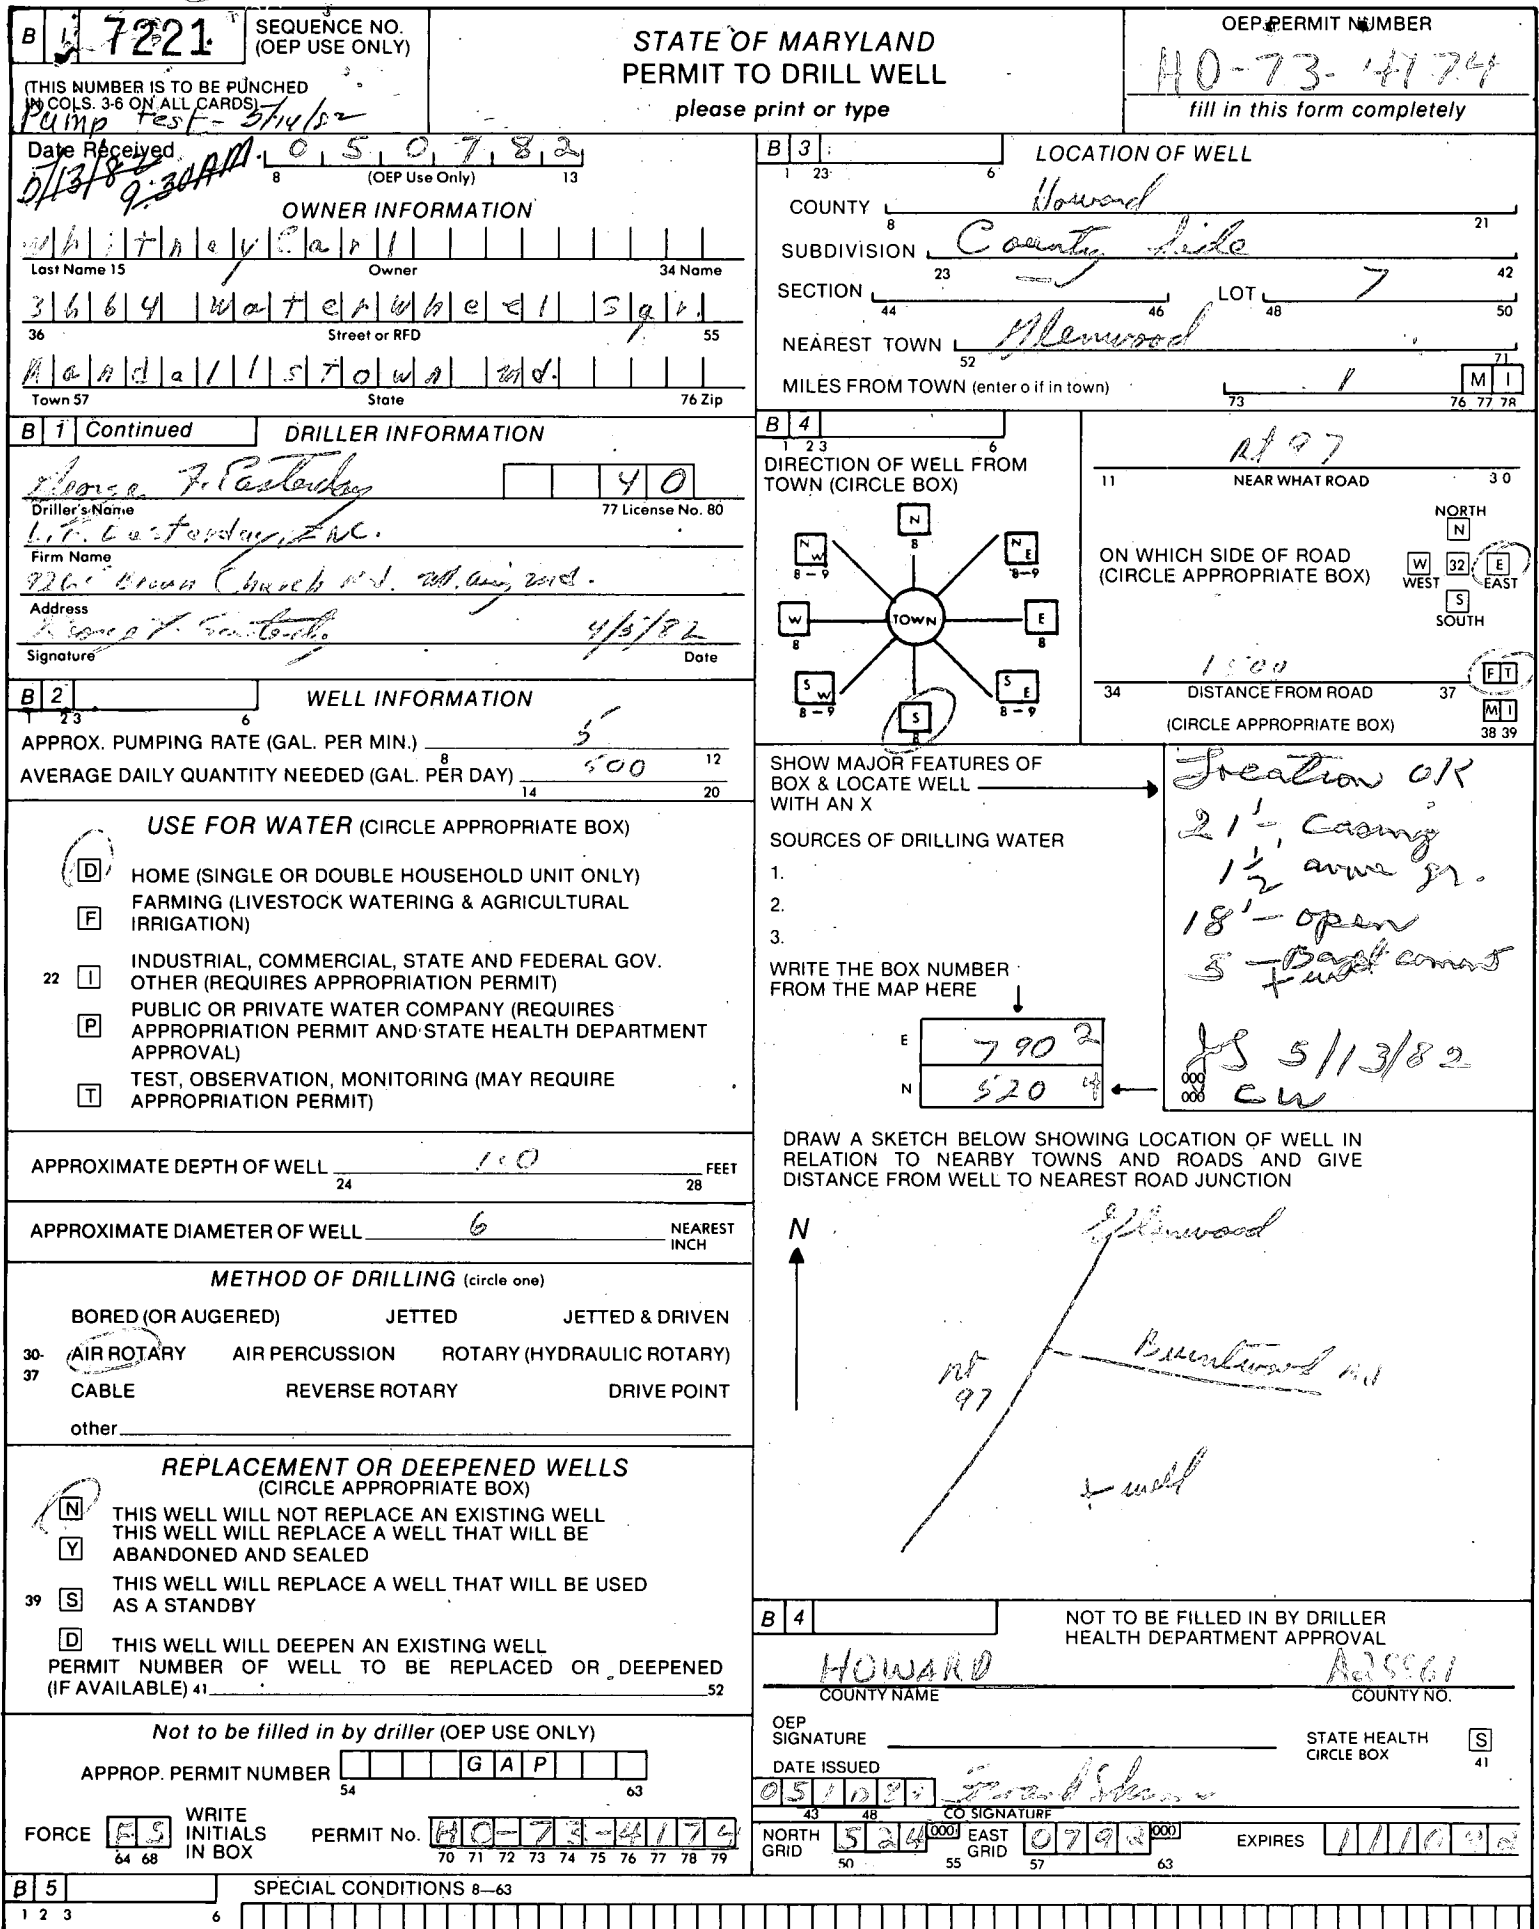 B 1 7221 SEQUENCE NO. (OEP USE ONLY)
(THIS NUMBER IS TO BE PUNCHED
IN COLS. 3-6 ON ALL CARDS)
STATE OF MARYLAND
PERMIT TO DRILL WELL
please print or type
OEP PERMIT NUMBER
HO-73-4174
fill in this form completely
Pump test - 5/14/82
Date Received 0 5 0 7 8 2
5/13/82 9:30 AM.
8 (OEP Use Only) 13
OWNER INFORMATION
Whitney Carl
Last Name 15 Owner 34 Name
3664 Waterwheel Sqr.
36 Street or RFD 55
Randallstown Md.
Town 57 State 76 Zip
B 1 Continued DRILLER INFORMATION
George F. Easterday 40
Driller's Name 77 License No. 80
L.F. Easterday, INC.
Firm Name
Brown Church Rd. Mt. Airy Md.
Address
George F. Easterday 4/5/82
Signature Date
B 2 WELL INFORMATION
1 2 3 6
APPROX. PUMPING RATE (GAL. PER MIN.) 5
8 12
AVERAGE DAILY QUANTITY NEEDED (GAL. PER DAY) 500
14 20
USE FOR WATER (CIRCLE APPROPRIATE BOX)
D HOME (SINGLE OR DOUBLE HOUSEHOLD UNIT ONLY)
F FARMING (LIVESTOCK WATERING & AGRICULTURAL
IRRIGATION)
22 I INDUSTRIAL, COMMERCIAL, STATE AND FEDERAL GOV.
OTHER (REQUIRES APPROPRIATION PERMIT)
P PUBLIC OR PRIVATE WATER COMPANY (REQUIRES
APPROPRIATION PERMIT AND STATE HEALTH DEPARTMENT
APPROVAL)
T TEST, OBSERVATION, MONITORING (MAY REQUIRE
APPROPRIATION PERMIT)
APPROXIMATE DEPTH OF WELL FEET
24 28
APPROXIMATE DIAMETER OF WELL 6 NEAREST
INCH
METHOD OF DRILLING (circle one)
BORED (OR AUGERED) JETTED JETTED & DRIVEN
30-37 AIR ROTARY AIR PERCUSSION ROTARY (HYDRAULIC ROTARY)
CABLE REVERSE ROTARY DRIVE POINT
other
REPLACEMENT OR DEEPENED WELLS
(CIRCLE APPROPRIATE BOX)
N THIS WELL WILL NOT REPLACE AN EXISTING WELL
Y THIS WELL WILL REPLACE A WELL THAT WILL BE
ABANDONED AND SEALED
39 S THIS WELL WILL REPLACE A WELL THAT WILL BE USED
AS A STANDBY
D THIS WELL WILL DEEPEN AN EXISTING WELL
PERMIT NUMBER OF WELL TO BE REPLACED OR DEEPENED
(IF AVAILABLE) 41 52
Not to be filled in by driller (OEP USE ONLY)
APPROP. PERMIT NUMBER G A P
54 63
FORCE FS WRITE
INITIALS
IN BOX
64 68
PERMIT No. HO-73-4174
70 71 72 73 74 75 76 77 78 79
B 3 LOCATION OF WELL
1 23 6
COUNTY Howard
8 21
SUBDIVISION County Side
23 42
SECTION — LOT 7
44 46 48 50
NEAREST TOWN Glenwood
52 71
MILES FROM TOWN (enter o if in town) 1 M I
73 76 77 78
B 4
1 2 3 6
DIRECTION OF WELL FROM
TOWN (CIRCLE BOX)
N
8
N W
8-9
N E
8-9
W
8
TOWN
E
8
S W
8-9
S E
8-9
S
8
Rt 97
11 NEAR WHAT ROAD 30
ON WHICH SIDE OF ROAD
(CIRCLE APPROPRIATE BOX)
NORTH
N
W 32 E
WEST EAST
S
SOUTH
1500 F T
34 DISTANCE FROM ROAD 37
(CIRCLE APPROPRIATE BOX) M I
38 39
SHOW MAJOR FEATURES OF
BOX & LOCATE WELL
WITH AN X
SOURCES OF DRILLING WATER
1.
2.
3.
WRITE THE BOX NUMBER
FROM THE MAP HERE
E 790 2
N 520 4
Location OK
21' - Casing
1 1/2 above gr.
18' - open
5 - Bags cement
JS 5/13/82
000
000 CW
DRAW A SKETCH BELOW SHOWING LOCATION OF WELL IN
RELATION TO NEARBY TOWNS AND ROADS AND GIVE
DISTANCE FROM WELL TO NEAREST ROAD JUNCTION
N
Glenwood
Burntwood Rd
Rt
97
+ well
B 4 NOT TO BE FILLED IN BY DRILLER
HEALTH DEPARTMENT APPROVAL
HOWARD A25561
COUNTY NAME COUNTY NO.
OEP
SIGNATURE
STATE HEALTH
CIRCLE BOX S
41
DATE ISSUED
43 48 CO SIGNATURE
NORTH
GRID 524 000 EAST
GRID 0792 000 EXPIRES
50 55 57 63
B 5 SPECIAL CONDITIONS 8—63
1 2 3 6